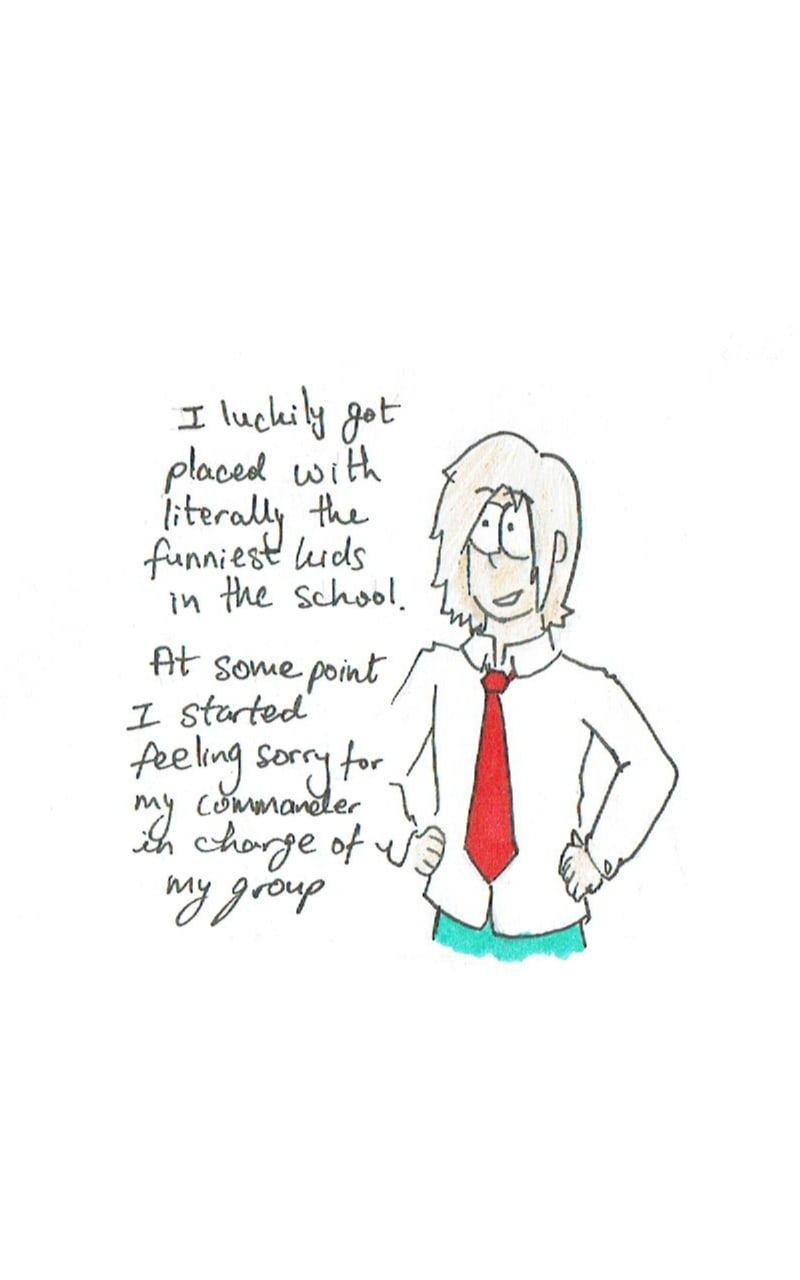 I luckily got
placed with
literally the
funniest kids
in the school.
At some point
I started
feeling sorry for
my commander
in charge of
my group